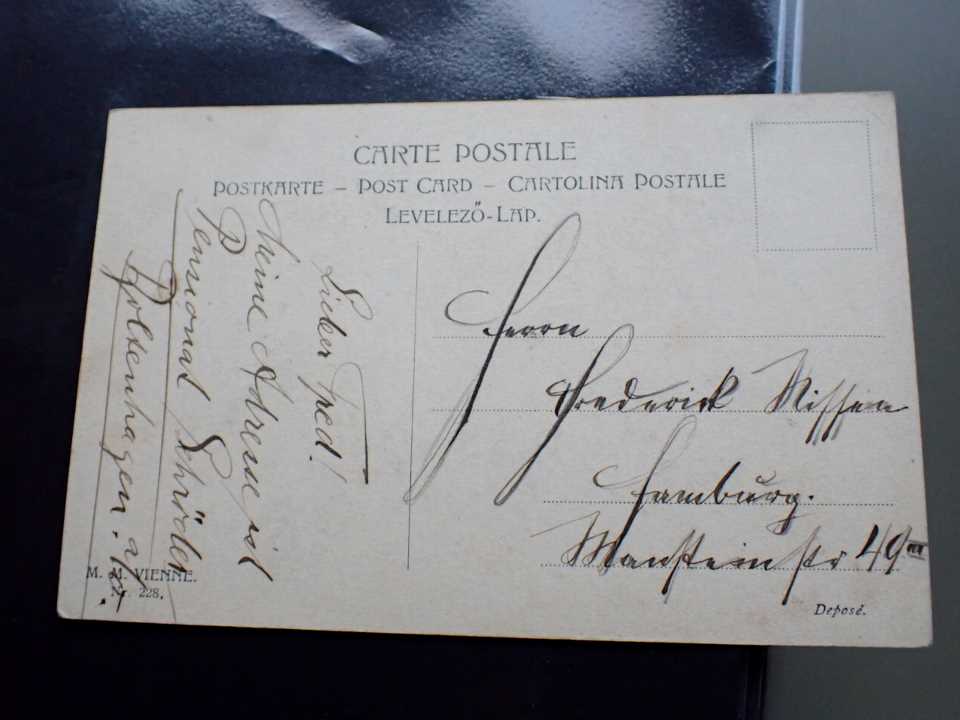 CARTE POSTALE
POSTKARTE – POST CARD – CARTOLINA POSTALE
LEVELEZŐ-LAP.
Lieber Fred!
Meine Adresse ist
Pensionat Schröder
Boltenhagen. a/
Herrn
Frederick Nissen
Hamburg.
Mansteinstr 49
M. M. VIENNE.
Nr. 228.
Deposé.